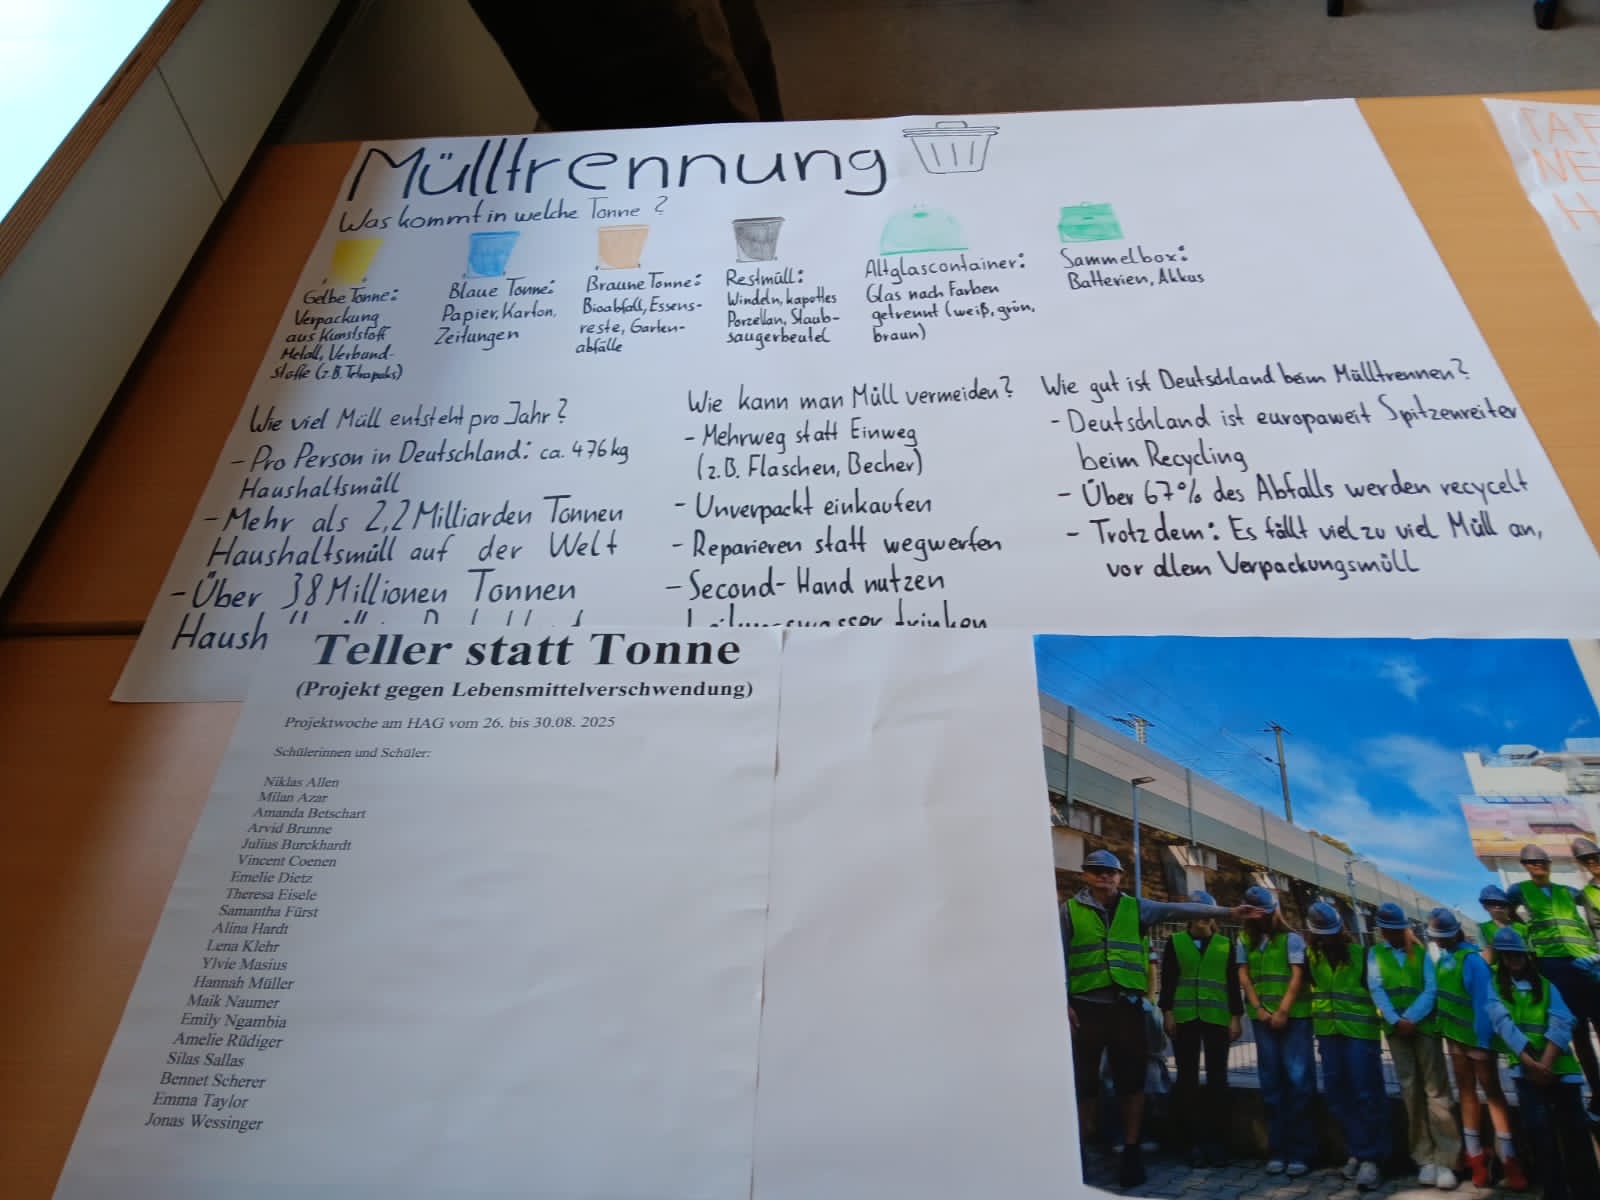 Mülltrennung
Was kommt in welche Tonne?
Gelbe Tonne:
Verpackung
aus Kunststoff
Metall, Verbund-
stoffe (z.B. Tetrapaks)
Blaue Tonne:
Papier, Karton,
Zeitungen
Braune Tonne:
Bioabfall, Essens-
reste, Garten-
abfälle
Restmüll:
Windeln, kaputtes
Porzellan, Staub-
saugerbeutel
Altglascontainer:
Glas nach Farben
getrennt (weiß, grün,
braun)
Sammelbox:
Batterien, Akkus
Wie viel Müll entsteht pro Jahr?
- Pro Person in Deutschland: ca. 476 kg
Haushaltsmüll
- Mehr als 2,2 Milliarden Tonnen
Haushaltsmüll auf der Welt
- Über 38 Millionen Tonnen
Wie kann man Müll vermeiden?
- Mehrweg statt Einweg
(z.B. Flaschen, Becher)
- Unverpackt einkaufen
- Reparieren statt wegwerfen
- Second-Hand nutzen
Wie gut ist Deutschland beim Mülltrennen?
- Deutschland ist europaweit Spitzenreiter
beim Recycling
- Über 67% des Abfalls werden recycelt
- Trotzdem: Es fällt viel zu viel Müll an,
vor allem Verpackungsmüll
Teller statt Tonne
(Projekt gegen Lebensmittelverschwendung)
Projektwoche am HAG vom 26. bis 30.08. 2025
Schülerinnen und Schüler:
Niklas Allen
Milan Azar
Amanda Betschart
Arvid Brunne
Julius Burckhardt
Vincent Coenen
Emelie Dietz
Theresa Eisele
Samantha Fürst
Alina Hardt
Lena Klehr
Ylvie Masius
Hannah Müller
Maik Naumer
Emily Ngambia
Amelie Rüdiger
Silas Sallas
Bennet Scherer
Emma Taylor
Jonas Wessinger